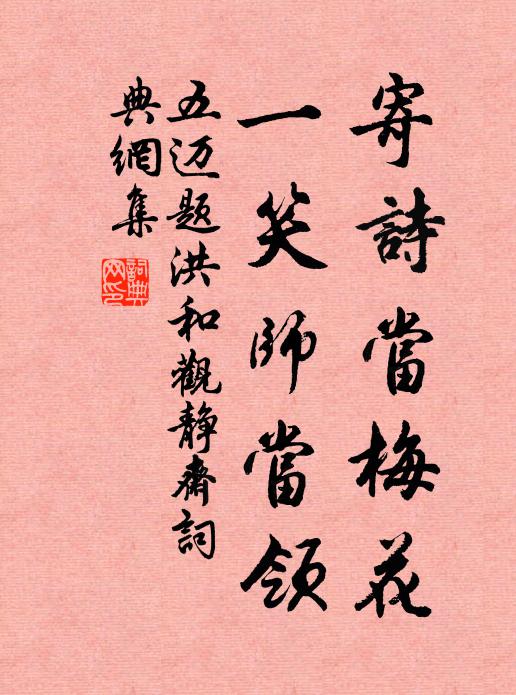 寄詩當梅花
一笑師當領
五迈题洪和觀静齋詞
典網集
詞典
网印